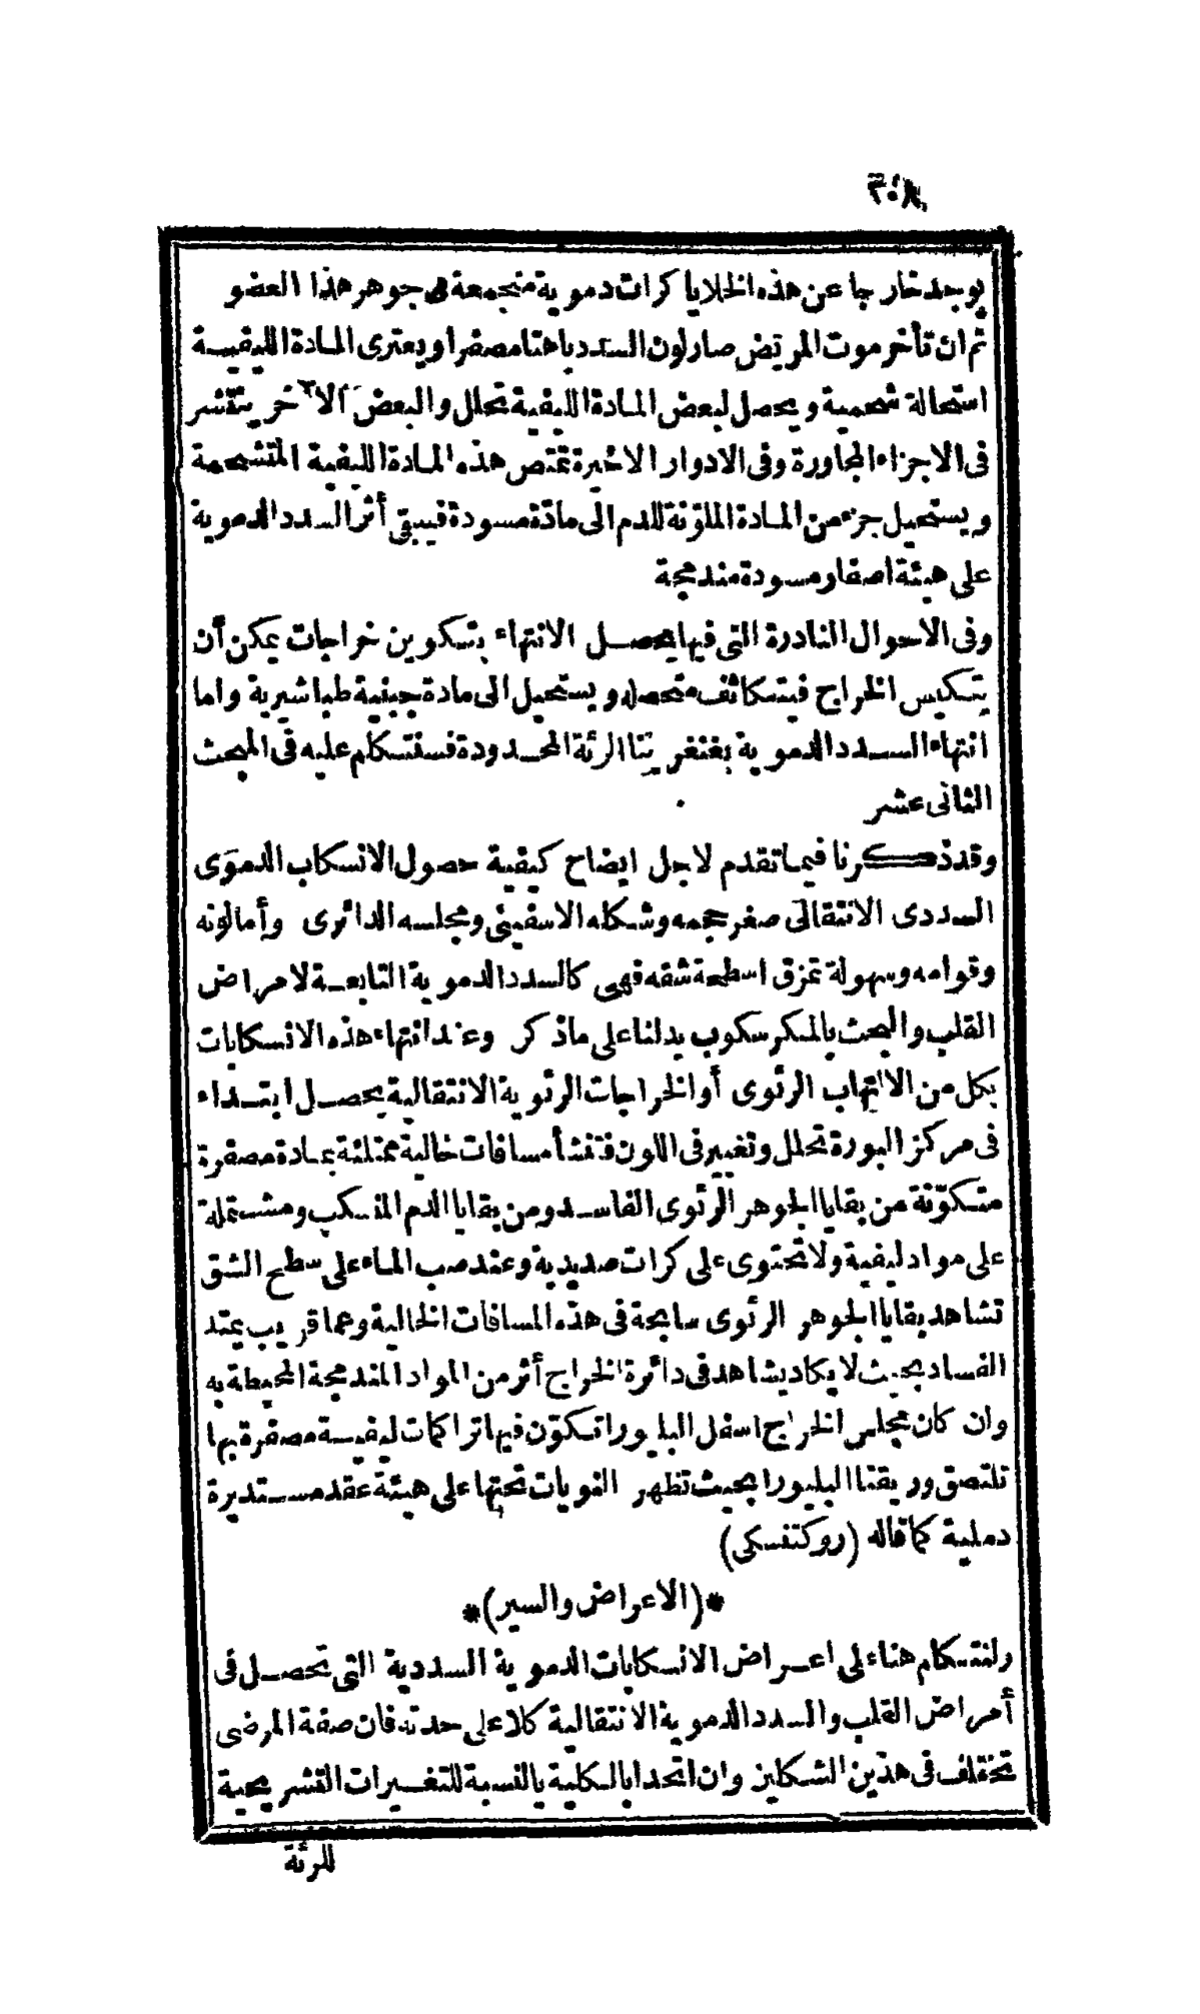 ٣٠٨
يوجد خارجا عن هذه الخلايا كرات دموية متجمعة فى جوهر هذا العضو
ثم ان تأخر موت المريض صار لون السدد باهتا مصفرا ويعترى المادة الليفيـة
استحالة شحمية ويحصل لبعض المادة الليفية تحلل والبعض الآخر ينتشر
فى الاجزاء المجاورة وفى الادوار الاخيرة تمتص هذه المادة الليفية المتشحمة
ويستحيل جزء من المادة الملوّنة للدم الى مادّة مسودة فيبقى أثر السدد الدموية
على هيئة اصفار مسودة مندمجة
وفى الاحوال النادرة التى فيها يحصل الانتهاء بتكوين خراجات يمكن أن
يتكيس الخراج فيتكاثف متحصله ويستحيل الى مادة جبنية طباشيرية واما
انتهاء السدد الدموية بغنغرينا الرئة المحدودة فسنتكلم عليه فى المبحث
الثانى عشر
وقد ذكرنا فيما تقدم لاجل ايضاح كيفية حصول الانسكاب الدموى
السددى الانتقالى صغر حجمه وشكله الاسفينى ومجلسه الدائرى وأما لونه
وقوامه وسهولة تمزق اسطحة شقه فهى كالسدد الدموية التابعة لامراض
القلب والبحث بالمكرسكوب يدلنا على ماذكر وعند انتهاء هذه الانسكابات
بكل من الالتهاب الرئوى أو الخراجات الرئوية الانتقالية يحصل ابتداء
فى مركز البورة تحلل وتغيير فى اللون فتنشأ مسافات خالية ممتلئة بمادة مصفرة
متكوّنة من بقايا الجوهر الرئوى الفاسد ومن بقايا الدم المنسكب ومشتملة
على مواد ليفية ولا تحتوى على كرات صديدية وعند صب الماء على سطح الشق
تشاهد بقايا الجوهر الرئوى سابحة فى هذه المسافات الخالية وعما قريب يمتد
الفساد بحيث لا يكاد يشاهد فى دائرة الخراج أثر من المواد المندمجة المحيطة به
وان كان مجلس الخراج اسفل البليورا تكوّن فيها تراكمات ليفية مصفرة بها
تلتصق وريقتا البليورا بحيث تظهر النويات تحتها على هيئة عقد مستديرة
دملية كما قاله (روكتفسكى)
*(الاعراض والسير)*
ولنتكلم هنا على اعراض الانسكابات الدموية السددية التى تحصل فى
أمراض القلب والسدد الدموية الانتقالية كلا على حدته فان صفة المرضى
تختلف فى هذين الشكلين وان اتحدا بالكلية بالنسبة للتغييرات التشريحية
للرئة